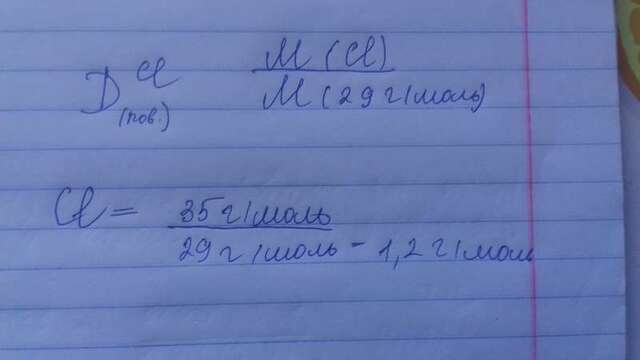 D Cl (пов.) M (Cl)
M (29 г/моль)
Cl = 35 г/моль
29 г/моль - 1,2 г/моль